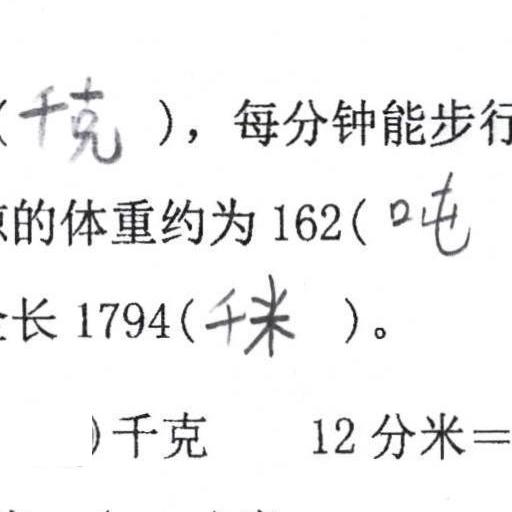 (千克 ),每分钟能步行
的体重约为 162( 吨
长 1794(千米 )。
)千克 12 分米=